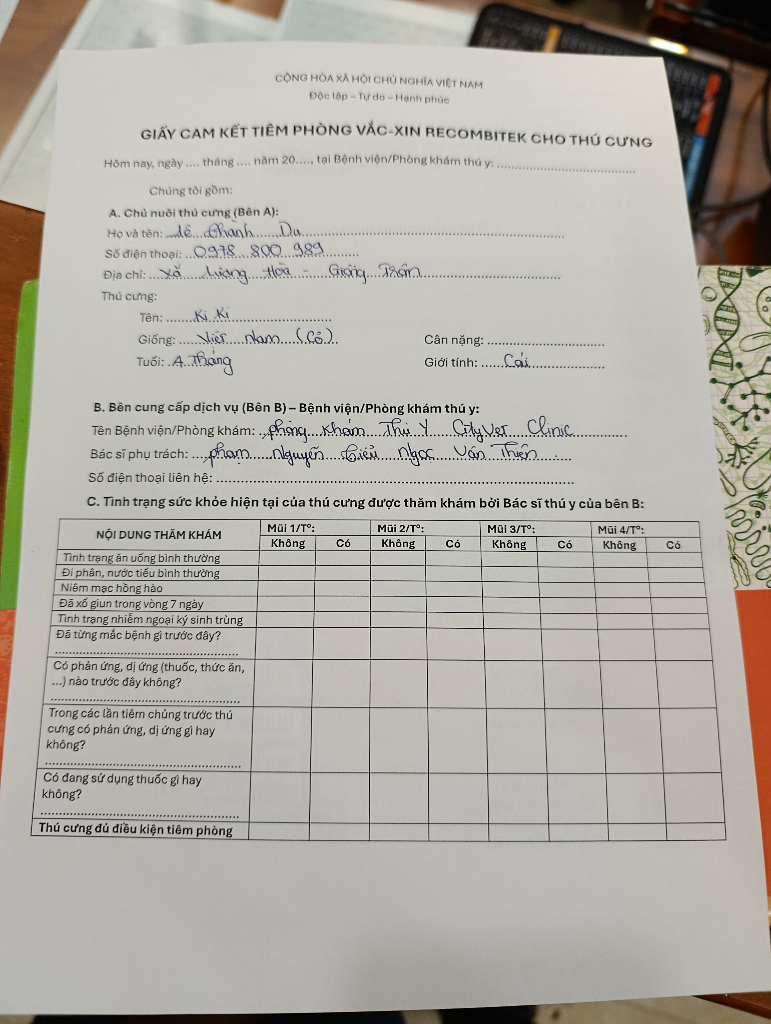 CỘNG HÒA XÃ HỘI CHỦ NGHĨA VIỆT NAM
Độc lập – Tự do – Hạnh phúc
GIẤY CAM KẾT TIÊM PHÒNG VẮC-XIN RECOMBITEK CHO THÚ CƯNG
Hôm nay, ngày .... tháng .... năm 20...., tại Bệnh viện/Phòng khám thú y: ........................................
Chúng tôi gồm:
A. Chủ nuôi thú cưng (Bên A):
Họ và tên: Lê Thành Du
Số điện thoại: 0978 800 989
Địa chỉ: Xã Lương Hoà - Giồng Trôm
Thú cưng:
Tên: Ki Ki
Giống: Việt Nam (Cỏ) Cân nặng: ..............................
Tuổi: 4 Tháng Giới tính: Cái
B. Bên cung cấp dịch vụ (Bên B) – Bệnh viện/Phòng khám thú y:
Tên Bệnh viện/Phòng khám: phòng Khám Thú Y CityVet Clinic
Bác sĩ phụ trách: phạm Nguyễn Ngọc Vân Thiên
Số điện thoại liên hệ: ........................................
C. Tình trạng sức khỏe hiện tại của thú cưng được thăm khám bởi Bác sĩ thú y của bên B:
NỘI DUNG THĂM KHÁM Mũi 1/T°: Mũi 2/T°: Mũi 3/T°: Mũi 4/T°:
Không Có Không Có Không Có Không Có
Tình trạng ăn uống bình thường
Đi phân, nước tiểu bình thường
Niêm mạc hồng hào
Đã xổ giun trong vòng 7 ngày
Tình trạng nhiễm ngoại ký sinh trùng
Đã từng mắc bệnh gì trước đây?
........................................
Có phản ứng, dị ứng (thuốc, thức ăn,
...) nào trước đây không?
........................................
Trong các lần tiêm chủng trước thú
cưng có phản ứng, dị ứng gì hay
không?
........................................
Có đang sử dụng thuốc gì hay
không?
........................................
Thú cưng đủ điều kiện tiêm phòng